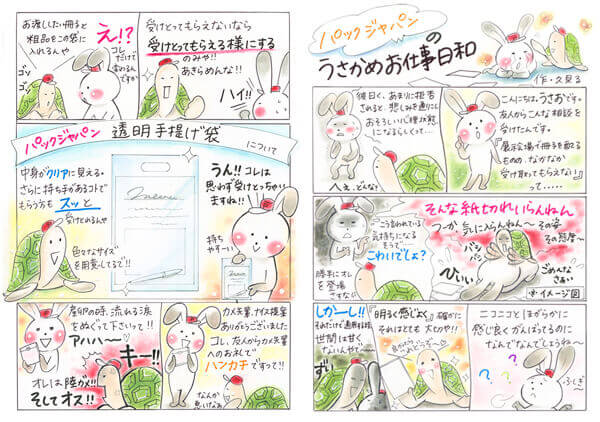 パックジャパン の
うさかめお仕事日和
作・久見る
こんにちは。うさおです。
友人からこんな相談を
受けたんです。
『展示会場で冊子を配る
ものの、なかなか
受け取ってもらえない』
って……
彼曰く、あまりに拒否
されると悲しみを通りこし
おそろしい心理状態
になるらしくって…
へぇ、どんな?
そんな紙切れいらんねん
つーか、気に入らんねん〜その姿
その態度〜
バシ
バシ
ひぃぃ
ごめんな
さぁい
※イメージ図
こう言われている
気持ちになる
そうで
こわいでしょ?
勝手にオレ
を登場
さすな
ニコニコと ほがらかに
感じ良くがんばってるのに
なんでなんでしょうね〜
ふしぎ〜
『明るく感じよく』確かに
それはとても大切や!!
しかーし!!
世間は甘く
ないんやで〜
ずい
受けとってもらえないなら
受けとってもらえる様にする
のみや!!
あきらめんな!!
ハイ!!
お渡ししたい冊子と
粗品をこの袋に
入れるんや
え!?
コレ
だけで
変わるん
ですか
ゴソ
ゴソ
パックジャパン 透明手提げ袋
について
うん!!コレは
思わず受けとっちゃい
ますね!!
持ち
やすーい
中身がクリアに見える。
さらに持ち手があるコトで
もらう方もスッと
受けとれるんや
色々なサイズ
を用意してるで!!
カメ先輩、ナイス提案
ありがとうございました
コレ、友人からカメ先輩
へのお礼で
ハンカチですって!!
なんか
悪いなぁ
産卵の時、流れる涙
をぬぐって下さいって!!
アハハ〜
キー!!
オレは陸ガメ!!
そしてオス!!